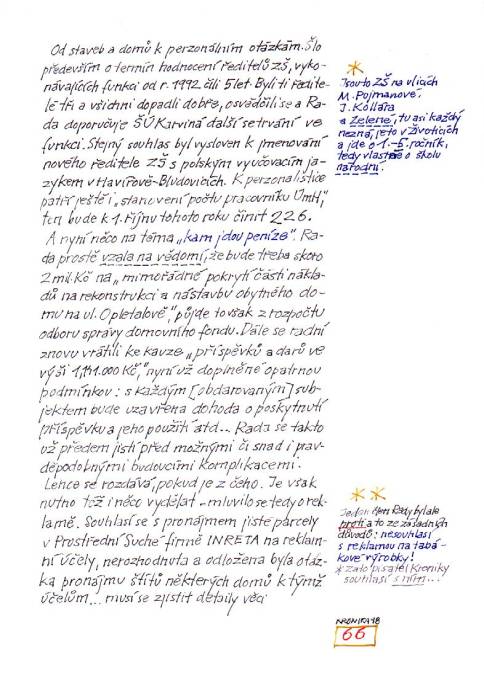 Od staveb a domů k perzonálním otázkám. Šlo
především o termín hodnocení ředitelů ZŠ, vyko-
návajících funkci od r. 1992 čili 5 let. Byli tři ředite-
lé tři a všichni dopadli dobře, osvědčili se a Ra-
da doporučuje ŠÚ Karviná další setrvání ve
funkci. Stejný souhlas byl vysloven k jmenování
nového ředitele ZŠ s polským vyučovacím ja-
zykem v Havířově-Bludovicích. K perzonalistice
patří ještě i „stanovení počtu pracovníků ÚmH“,
ten bude k 1. říjnu tohoto roku činit 226.
A nyní něco na téma „kam jdou peníze“. Ra-
da prostě vzala na vědomí, že bude třeba skoro
2 mil. Kč na „mimořádné pokrytí části nákla-
dů na rekonstrukci a nástavbu obytného do-
mu na ul. Opletalově“, půjde to však z rozpočtu
odboru správy domovního fondu. Dále se radní
znovu vrátili ke kauze „příspěvků a darů ve
výši 1,141.000 Kč“, nyní už doplněné opatrnou
podmínkou: s každým [obdarovaným] sub-
jektem bude uzavřena dohoda o poskytnutí
příspěvku a jeho použití atd... Rada se takto
už předem jistí před možnými či snad i prav-
děpodobnými budoucími komplikacemi.
Lehce se rozdává, pokud je z čeho. Je však
nutno též i něco vydělat - mluvilo se tedy o rek-
lamě. Souhlasí se s pronájmem jisté parcely
v Prostřední Suché firmě INRETA na reklam-
ní účely, nerozhodnuta a odložena byla otáz-
ka pronájmu štítů některých domů k týmž
účelům... musí se zjistit detaily věci
*
Jsou to ZŠ na ulicích
M. Pujmanové,
J. Kollára
a Zelené, tu asi každý
nezná, je to v Životicích
a jde o 1.-5. ročník,
tedy vlastně o školu
národní.
* *
Jeden člen Rady byl ale
proti a to ze zásadních
důvodů: nesouhlasí
s reklamou na tabá-
kové výrobky!
* zato pisatel Kroniky
souhlasí s ním...
KRONIKA 98
66